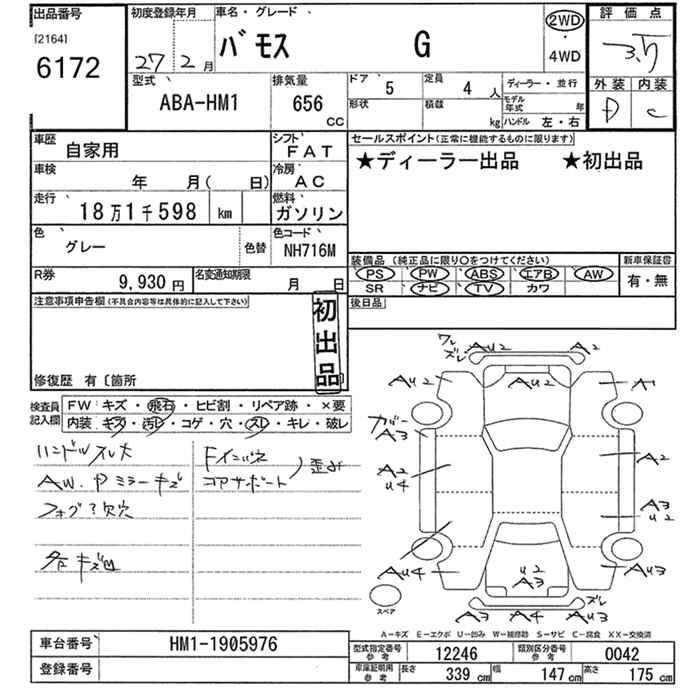 出品番号
[2164]
6172
初度登録年月
27年2月
車名・グレード
バモス G
2WD
・
4WD
評価点
3.5
外装 内装
D C
型式
ABA-HM1
排気量
656
CC
ドア
5
定員
4人
形状
積載
kg
ディーラー・並行
モデル年式 年
ハンドル 左・右
車歴
自家用
シフト
FAT
車検
年 月( 日)
冷房
AC
走行
18万1千598 km
燃料
ガソリン
色
グレー
色替
色コード
NH716M
R券
9,930円
名変通知期限
月 日
セールスポイント(正常に機能するものに限ります)
★ディーラー出品 ★初出品
装備品(純正品に限り○をつけてください)
PS PW ABS エアB AW
SR ナビ TV カワ
新車保証書
有・無
後日品
注意事項申告欄(不具合内容等は具体的に記入して下さい)
初出品
修復歴 有〔箇所 〕
検査員記入欄
FW:キズ・飛石・ヒビ割・リペア跡・×要
内装:キズ・汚レ・コゲ・穴・スレ・キレ・破レ
ハンドルスレ大
AW.Pミラーキズ
フォグ?欠穴
各キズ凹
Fインパネ
コアサポート
歪み
ワレ
ズレ
AU2
A2
AU2
AU2
A1
カバー
A3
A2
U4
A2
A3
U2
AU4
U2
A3
AU3
ズレ
A3
A4
AU3
スペア
A-キズ E-エクボ U-凹み W-補修跡 S-サビ C-腐食 XX-交換済
車台番号
HM1-1905976
登録番号
型式指定番号
参考
12246
類別区分番号
参考
0042
車庫証明用
参考
長さ
339 cm
幅
147 cm
高さ
175 cm